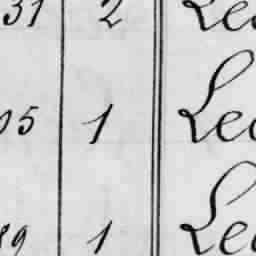 31 2 Leo
05 1 Leo
89 1 Leo